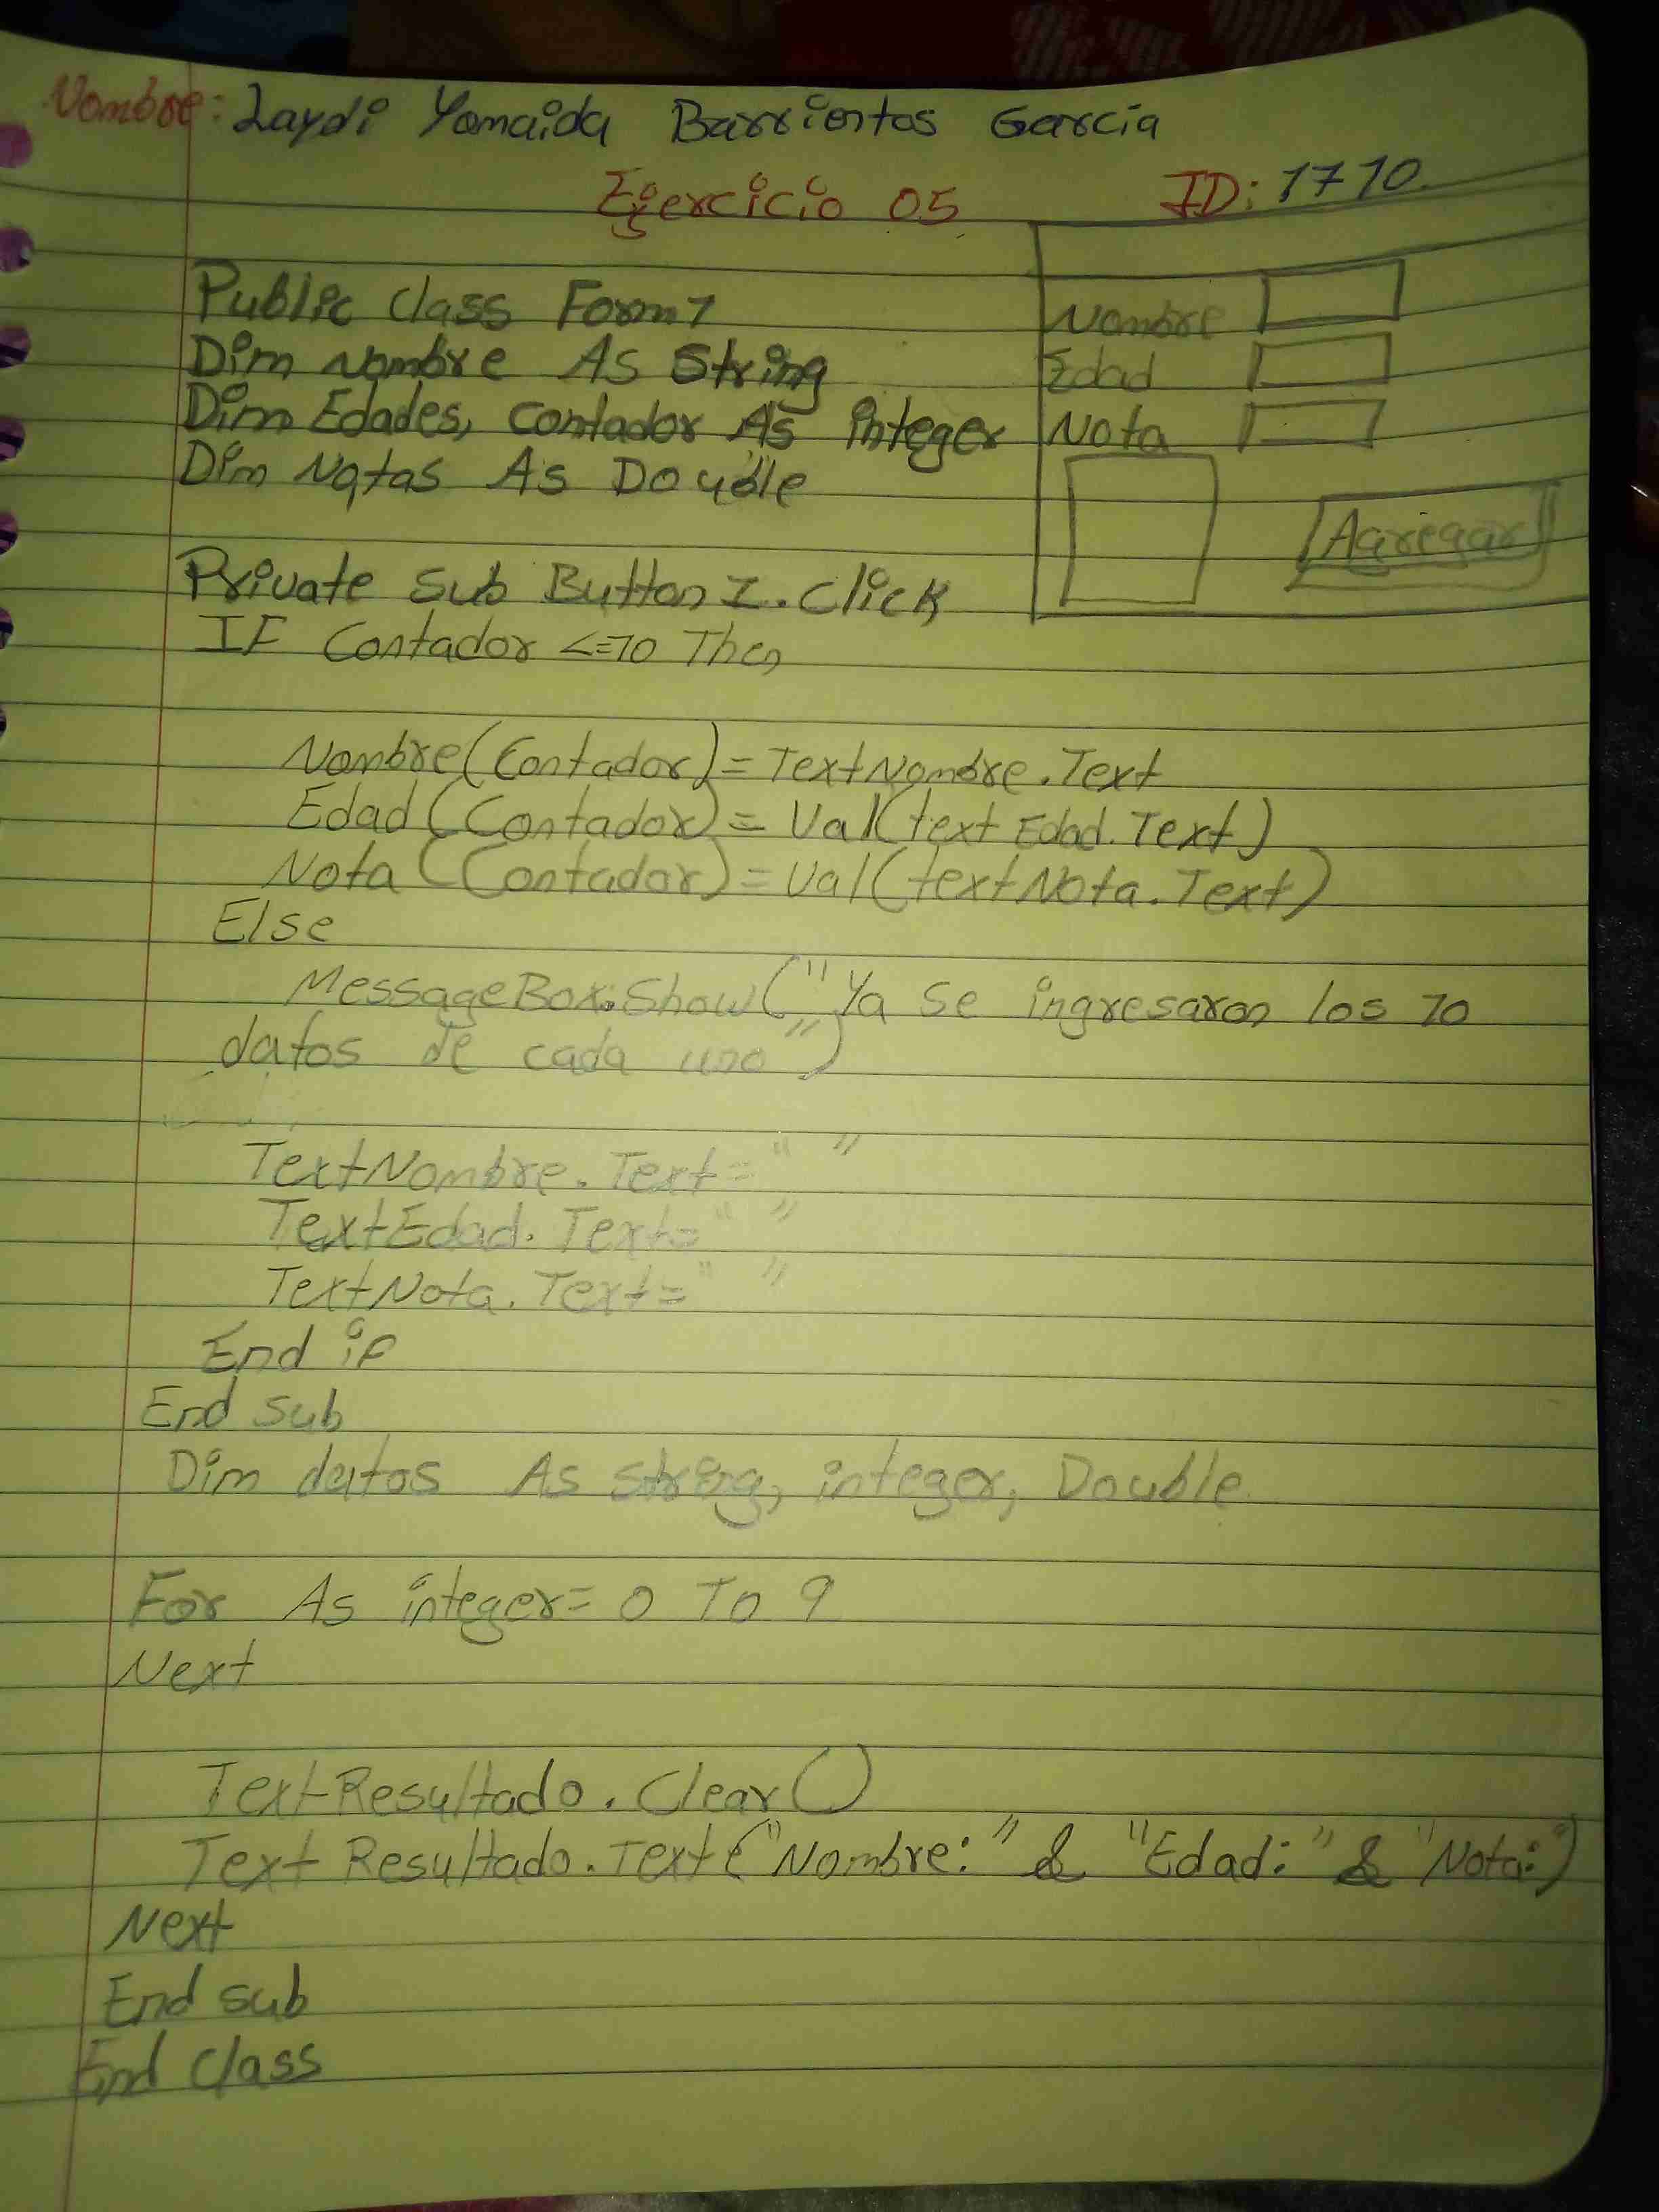 Nombre: Laydi Yomaida Barrientos Garcia
Ejercicio 05 ID: 1710
Public Class Form1
Dim Nombre As String
Dim Edades, Contador As integer
Dim Notas As Double
Nombre
Edad
Nota
Agregar
Private Sub Button1.Click
IF Contador <=10 Then
Nombre(Contador)=TextNombre.Text
Edad(Contador)= Val(text Edad.Text)
Nota(Contador)=Val(textNota.Text)
Else
MessageBox.Show("Ya se ingresaron los 10
datos de cada uno")
TextNombre.Text=" "
TextEdad.Text=" "
TextNota.Text=" "
End if
End sub
Dim datos As string, integer, Double
For As integer= 0 To 9
Next
TextResultado.Clear()
Text Resultado.Text("Nombre:" & "Edad:" & "Nota:")
Next
End sub
End Class